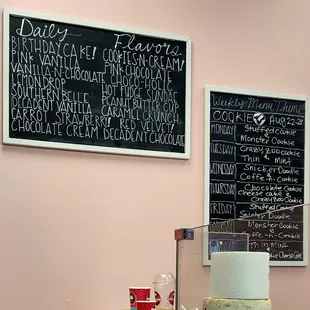 Daily Flavors
BIRTHDAY CAKE! COOKIES-N-CREAM!
PINK VANILLA PINK CHOCOLATE
VANILLA-N-CHOCOLATE
HOT FUDGE SUNDAE
SOUTHERN BELLE PEANUT BUTTER CUP
DECADENT VANILLA CARAMEL CRUNCH
CARROT STRAWBERRY! RED VELVET!
CHOCOLATE CREAM DECADENT CHOCOLATE
Weekly Menu Items
COOKIE Aug 22-27
MONDAY Stuffed Cookie
Monster Cookie
TUESDAY Crazy Boo Cookie
Thin Mint
WEDNESDAY Snicker Doodle
Coffe-n-Cookie
THURSDAY Chocolate Cookie
cheese cake &
Crazy Boo Cookie
FRIDAY Stuffed Cookie
Snicker Doodle
Monster Cookie
Coffe-n-Cookie
Thin Mint